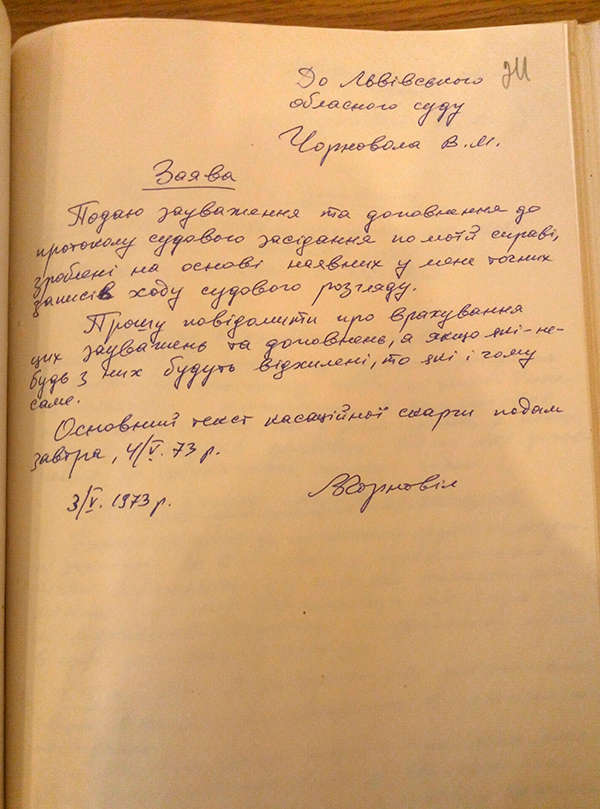 До Львівського
обласного суду
Чорновола В.М.
Заява
Подаю зауваження та доповнення до
протоколу судового засідання по моїй справі,
зроблені на основі наявних у мене точних
записів ходу судового розгляду.
Прошу повідомити про врахування
цих зауважень та доповнень, а якщо які-не-
будь з них будуть відхилені, то які і чому
саме.
Основний текст касаційної скарги подам
завтра, 4/V. 73 р.
3/V. 1973 р.
ВЧорновіл